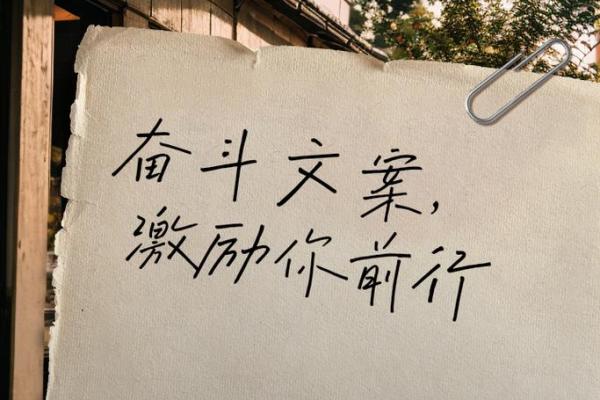 奋斗文案，
激励你前行